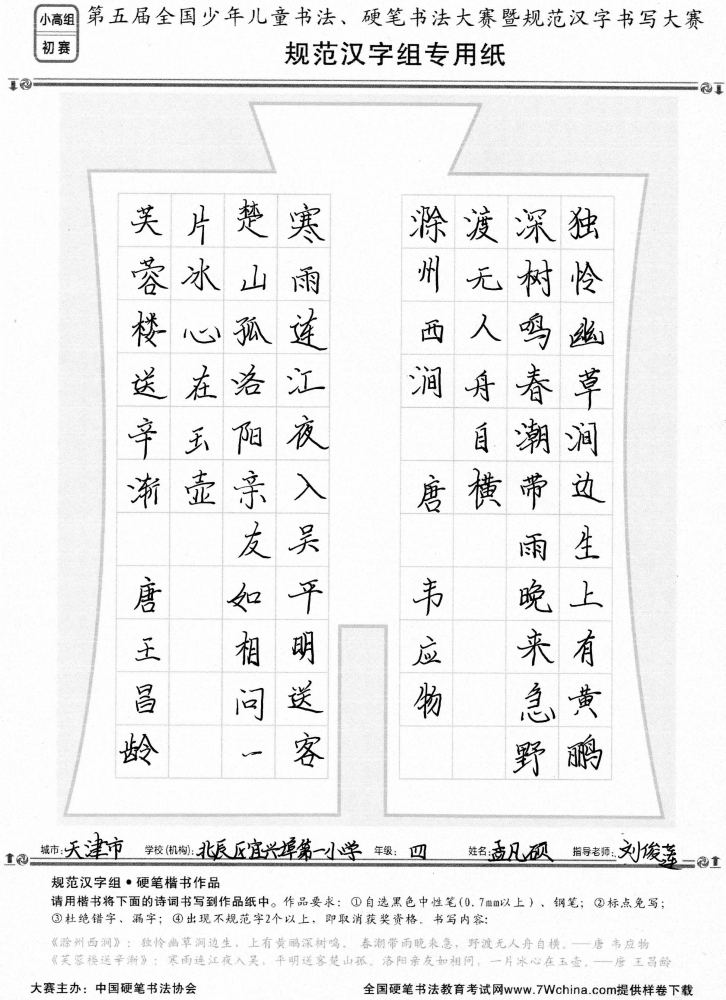 小高组
初赛
第五届全国少年儿童书法、硬笔书法大赛暨规范汉字书写大赛
规范汉字组专用纸
独怜幽草涧边生上有黄鹂
深树鸣春潮带雨晚来急野
渡无人舟自横
滁州西涧 唐 韦应物
寒雨连江夜入吴平明送客
楚山孤洛阳亲友如相问一
片冰心在玉壶
芙蓉楼送辛渐 唐王昌龄
城市:天津市 学校(机构):北辰区宜兴埠第一小学 年级:四 姓名:孟凡硕 指导老师:刘俊莲
规范汉字组•硬笔楷书作品
请用楷书将下面的诗词书写到作品纸中。作品要求:①自选黑色中性笔(0.7mm以上)、钢笔;②标点免写;
③杜绝错字、漏字;④出现不规范字2个以上,即取消获奖资格。书写内容:
《滁州西涧》:独怜幽草涧边生,上有黄鹂深树鸣。春潮带雨晚来急,野渡无人舟自横。——唐 韦应物
《芙蓉楼送辛渐》:寒雨连江夜入吴,平明送客楚山孤。洛阳亲友如相问,一片冰心在玉壶。——唐 王昌龄
大赛主办:中国硬笔书法协会 全国硬笔书法教育考试网www.7Wchina.com提供样卷下载